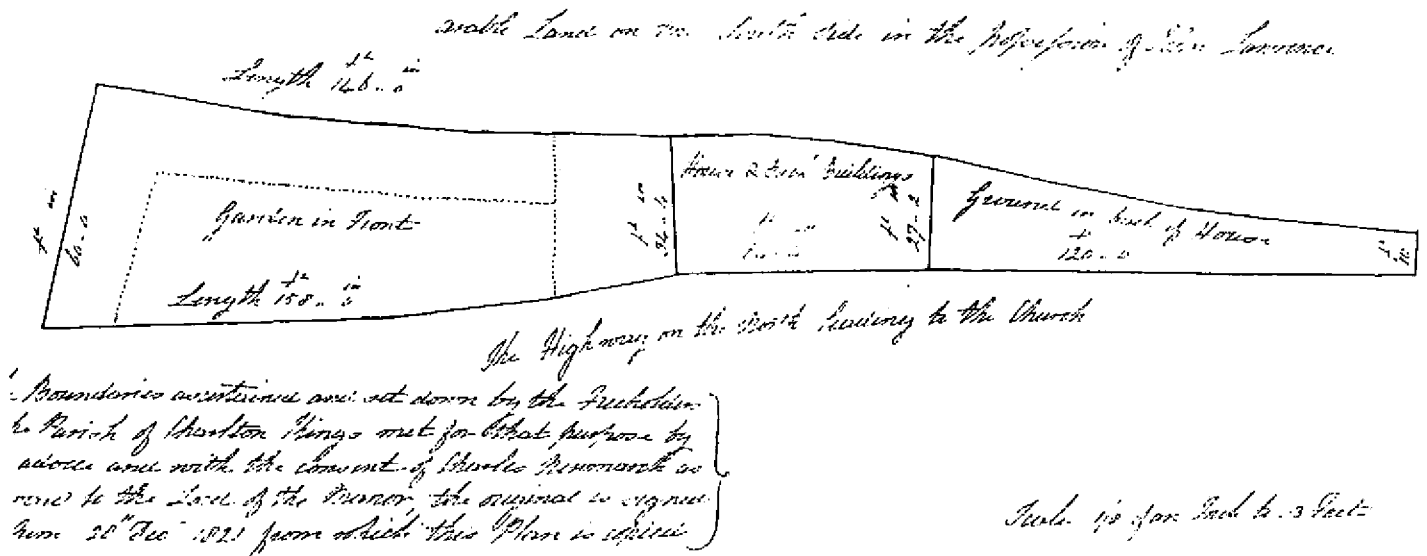 arable Land on the South side in the Possession of Lawrence
Length 146 - 0
ft in
60 - 0
Garden in Front
Length 158 - 0
ft in
House & Buildings
ft in
27 - 2
Ground in back of House
120 - 0
The Highway on the North leading to the Church
Boundaries ascertained and set down by the Freeholders
Parish of Charlton Kings met for that purpose by
and with the consent of Charles as
to the Lord of the Manor, the original is signed
28th Dec 1821 from which this Plan is copied
Scale of an Inch to 3 Feet